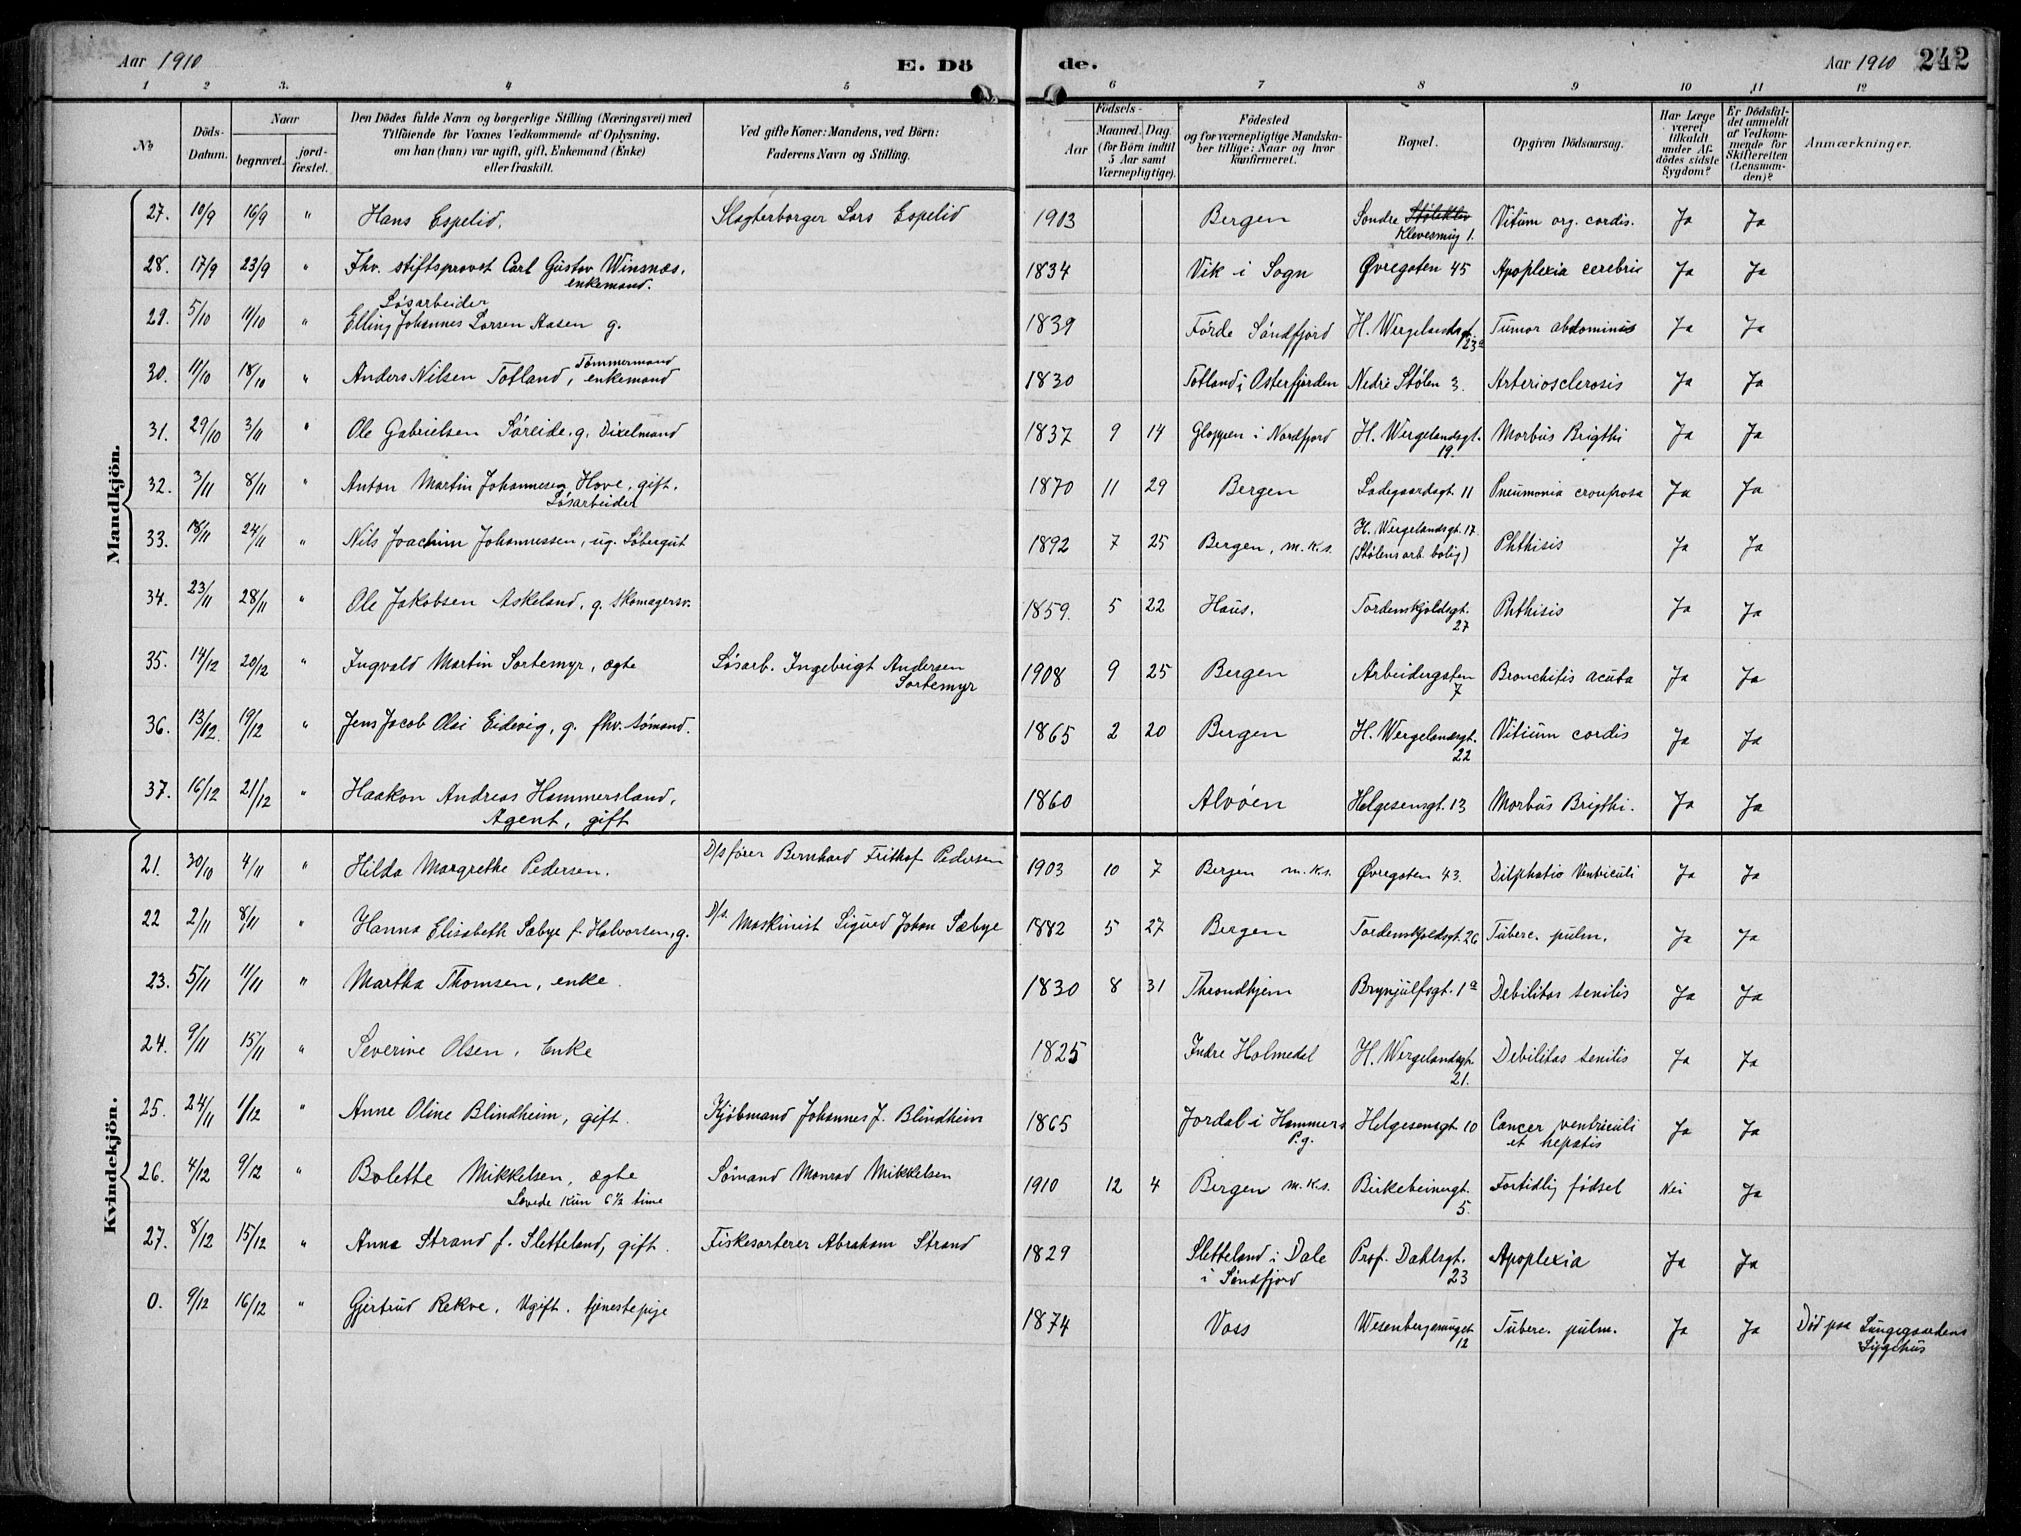 Aar 1910 E. Dö de. Aar 1910 242
1 2 3. 4 5 6 7 8 9 10 11 12
No
Döds-Datum.
Naar
begravet.
jord-fæstet.
Den Dödes fulde Navn og borgerlige Stilling (Næringsvei) med
Tilföiende for Voxnes Vedkommende af Oplysning,
om han (hun) var ugift, gift, Enkemand (Enke)
eller fraskilt.
Ved gifte Koner: Mandens, ved Börn:
Faderens Navn og Stilling.
Födsels-
Aar
Maaned. Dag.
(for Börn indtil
5 Aar samt
Værnepligtige).
Födested
og for værnepligtige Mandska-
ber tillige: Naar og hvor
konfirmeret.
Bopæl.
Opgiven Dödsaarsag.
Har Læge
været
tilkaldt
under Af-
dödes sidste
Sygdom?
Er Dödsfal-
det anmeldt
af Vedkom-
mende for
Skifteretten
(Lensman-
den)?
Anmærkninger.
Mandkjön.
27. 10/9 16/9 " Hans Espelid. Slagterborger Lars Espelid 1903 Bergen Søndre Støleklev Vitium org. cordis. Ja Ja
Klevesmug 1.
28. 17/9 23/9 " Fhv. stiftsprovst Carl Gustav Winsnæs, 1834 Vik i Sogn Øvregaten 45 Apoplexia cerebrii Ja Ja
enkemand.
Løsarbeider
29. 5/10 11/10 " Elling Johannes Larsen Aasen g. 1839 Förde Söndfjord H. Wergelandsgt. Tumor abdominus Ja Ja
23a
Tømmermand
30. 11/10 18/10 " Anders Nilsen Totland, enkemand 1830 Totland i Osterfjorden Nedre Stølen 3. Arteriosclerosis Ja Ja
31. 29/10 3/11 " Ole Gabrielsen Söreide. g. Dixelmand 1837 9 14 Gloppen i Nordfjord H. Wergelandsgt. Morbus Brigthi Ja Ja
19.
32. 3/11 8/11 " Anton Martin Johannesen Hove, gift. 1870 11 29 Bergen Ladegaardsgt. 11 Pneumonia crouposa Ja Ja
Løsarbeider
H. Wergelandsgt. 17
33. 18/11 24/11 " Nils Joachim Johannessen, ug. Løbergut 1892 7 25 Bergen, m.k.s. (Stølens arb. bolig) Phthisis Ja Ja
34. 23/11 28/11 " Ole Jakobsen Askeland, g. Skomagersv. 1859. 5 22 Haus. Tordenskjoldsgt. Phthisis Ja Ja
27
35. 14/12 20/12 " Ingvald Martin Sortemyr, ægte Løsarb. Ingebrigt Andersen 1908 9 25 Bergen Arbeidergaten Bronchitis acuta Ja Ja
Sortemyr 7
36. 13/12. 19/12 " Jens Jacob Olai Eidevig, g. fhv. sømand. 1865 2 20 Bergen H. Wergelandsgt. Vitium cordis Ja Ja
22
37. 16/12 21/12 " Haakon Andreas Hammersland, 1860 Alvöen Helgesensgt. 13 Morbus Brigthi. Ja Ja
Agent, gift
Kvindekjön.
21. 30/10 4/11 " Hilda Margrethe Pedersen. D/s fører Bernhard Frithof Pedersen 1903 10 7 Bergen m.k.s. Øvregaten 43. Dilphatio Ventriculi Ja Ja
22 2/11 8/11 " Hanna Elisabeth Sæbye f. Halvorsen, g. D/s. Maskinist Sigurd Johan Sæbye 1882 5 27 Bergen Tordenskjoldsgt. 26 Tuberc. pulm. Ja Ja
23. 5/11 11/11 " Martha Thomsen, enke. 1830 8 31 Throndhjem Brynjulfsgt. 1a Debilitas senilis Ja Ja
24. 9/11 15/11 " Severine Olsen, Enke 1825 Indre Holmedal H. Wergelandsgt. Debilitas senilis Ja Ja
21.
25. 24/11 1/12 " Anne Oline Blindheim, gift. Kjøbmand Johannes J. Blindheim 1865 Jordal i Hammers Helgesensgt. 10 Cancer ventriculi Ja Ja
P.g. et hepatis
26. 4/12 9/12 " Bolette Mikkelsen, ægte Sømand Monrad Mikkelsen 1910 12 4 Bergen m.k.s. Birkebeinergt. Fortidlig fødsel Nei Ja
Levede kun 6½ time 5.
27. 8/12 15/12 " Anna Strand f. Sletteland, gift. Fiskesorterer Abraham Strand 1829 Sletteland i Dale Prof. Dahlsgt. Apoplexia Ja Ja
i Söndfjord 23
0. 9/12 16/12 " Gjertrud Rekve, Ugift. tjenestepige 1874 Voss Wesenbergsmuget Tuberc. pulm. Ja Ja Död paa Lungegaardens
12 Sygehus